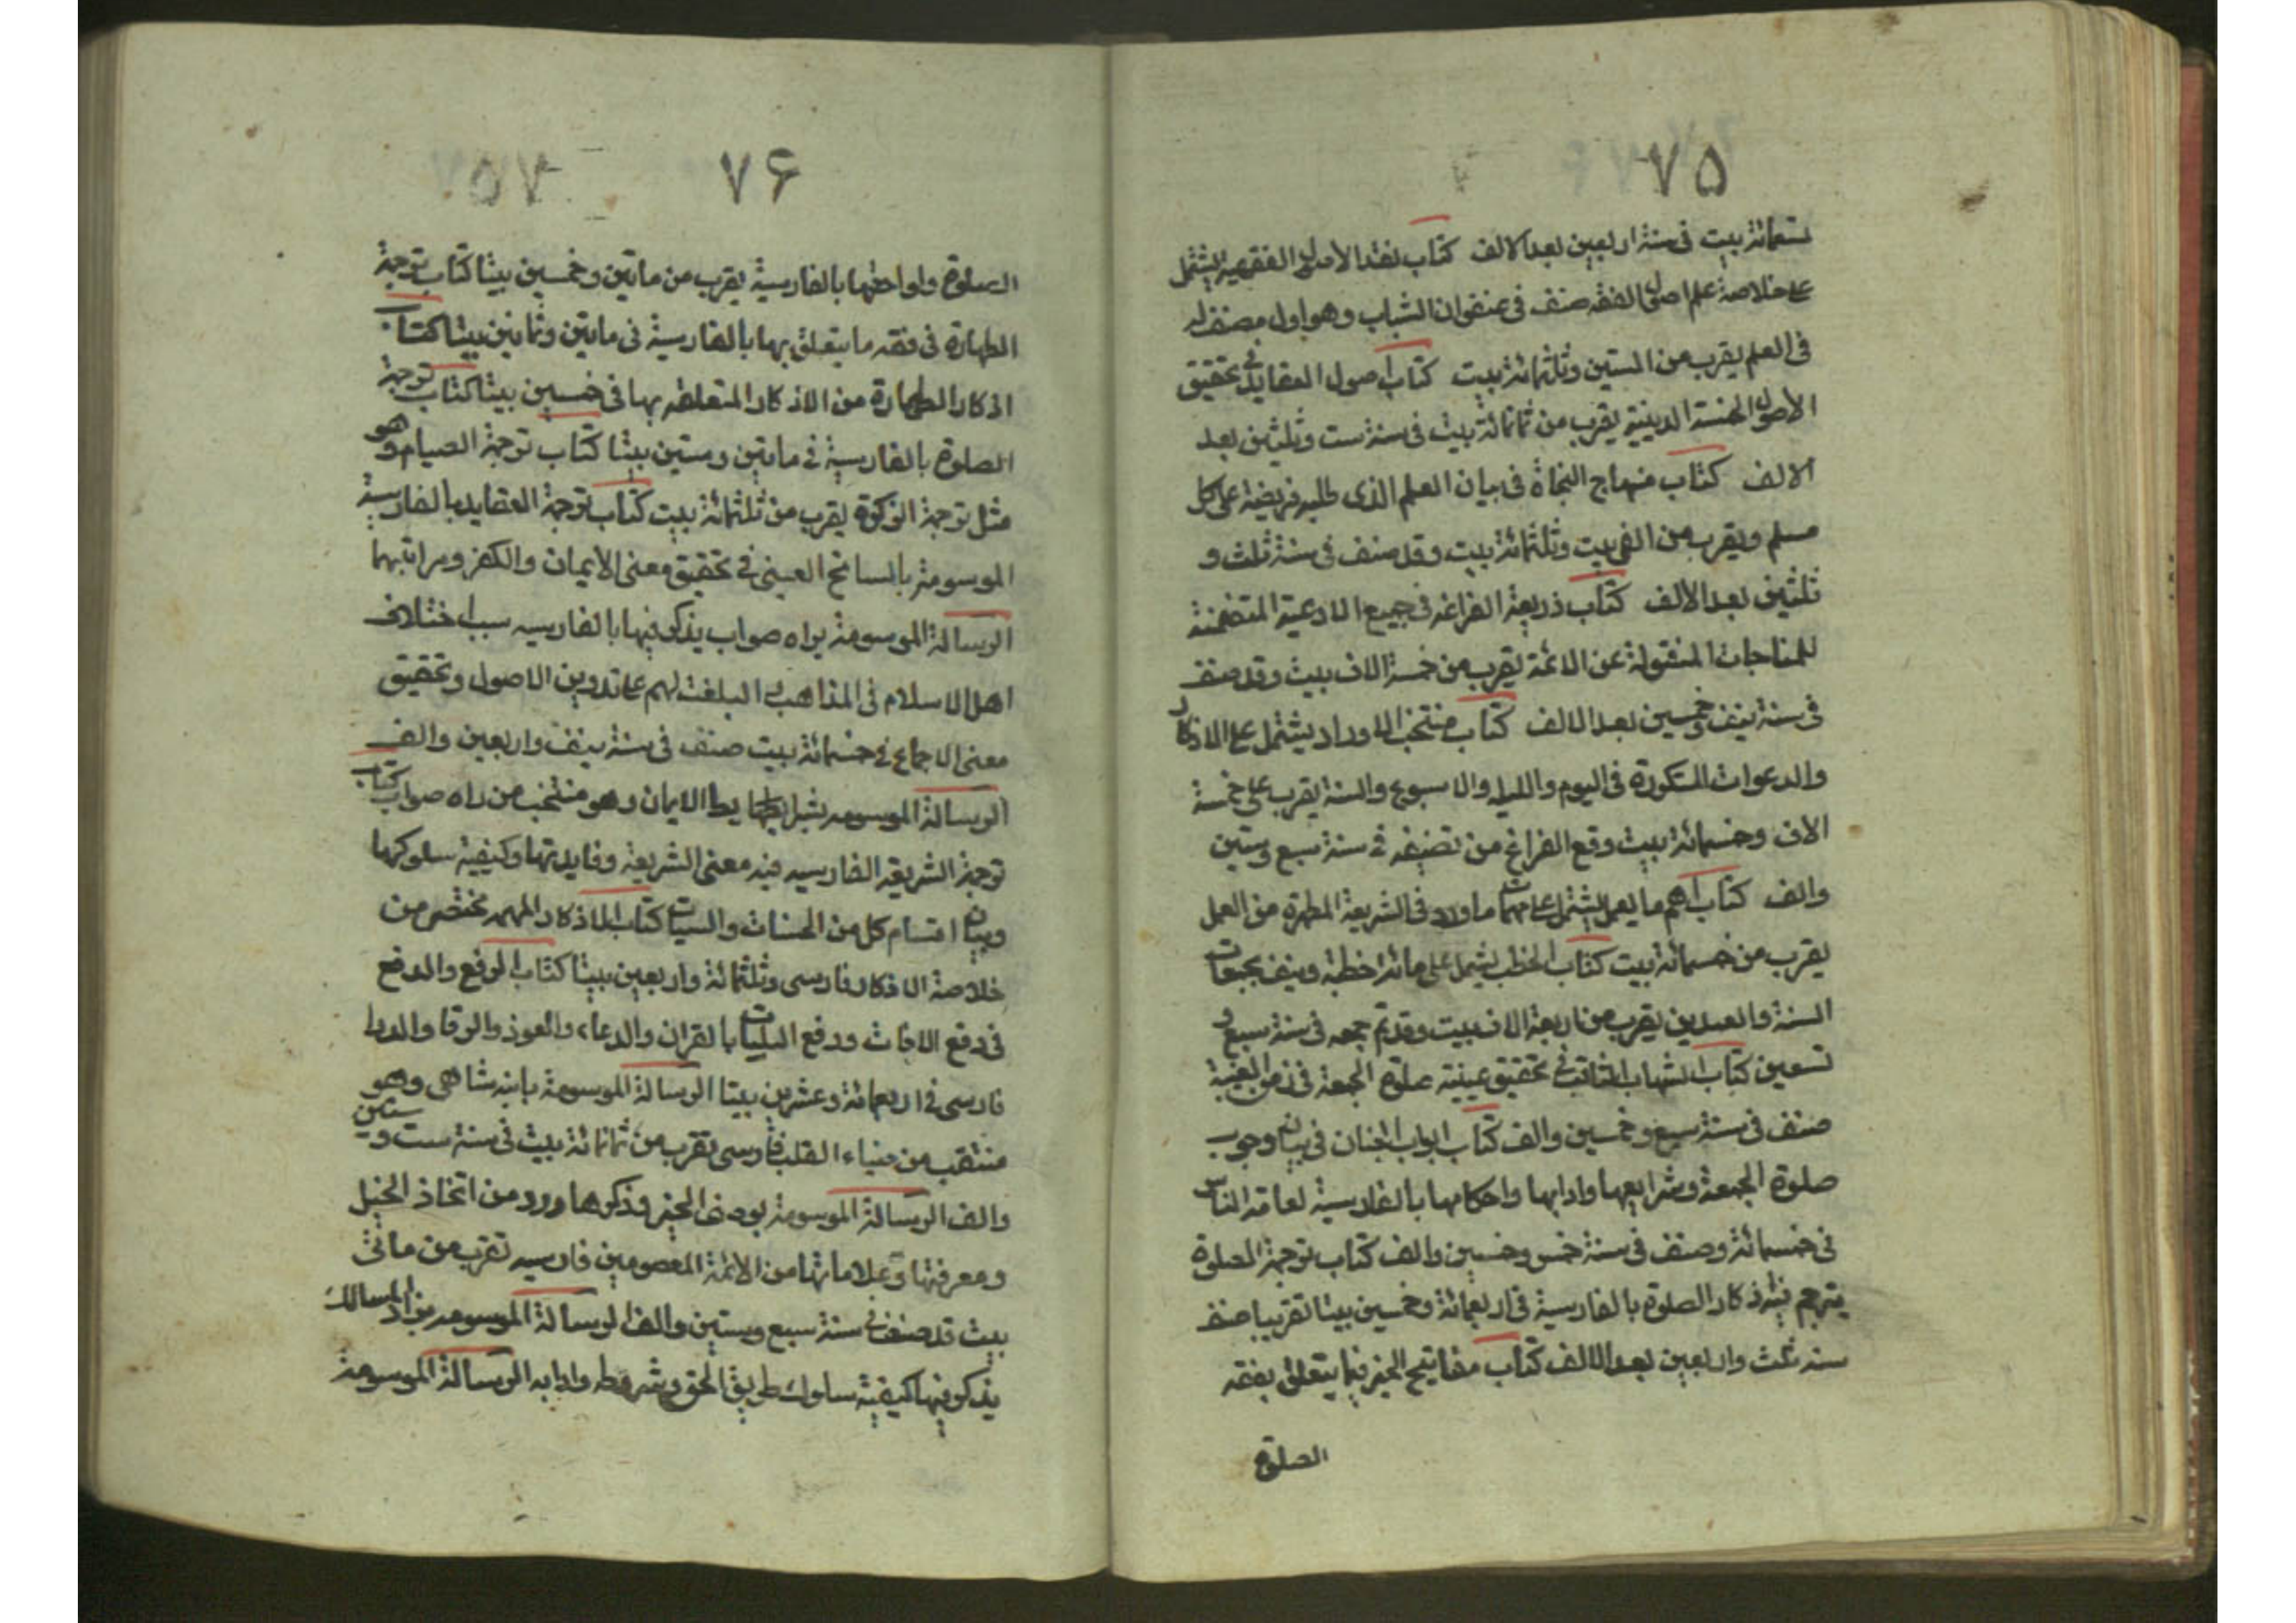 ٧۵
تسعمائة بيت في سنة اربعين بعد الالف كتاب نقد الاصول الفقهية يشتمل
على خلاصة علم اصول الفقه صنف في عنفوان الشباب وهو اول مصنف له
في العلم يقرب من الستين وثلثمائة بيت كتاب اصول العقايد في تحقيق
الأصول الخمسة الدينية يقرب من ثمانمائة بيت في سنة ست وثلثين بعد
الالف كتاب منهاج النجاة في بيان العلم الذى طلبه فريضة على كل
مسلم ويقرب من الفى بيت وثلثمائة بيت وقد صنف في سنة ثلث و
ثلثين بعد الألف كتاب ذريعة الضراعه في جميع الادعية المتضمنة
للمناجات المنقولة عن الائمة يقرب من خمسة الاف بيت وقد صنف
في سنة نيف وخمسين بعد الالف كتاب منتخب الاوراد يشتمل على الاذكار
والدعوات المتكررة في اليوم والليله والاسبوع والسنة يقرب على خمسة
الاف وخمسمائة بيت وقع الفراغ من تصنيفه في سنة سبع وستين
والف كتاب اهم ما يعمل يشتمل على مهمات ما ورد في الشريعة المطهرة من العمل
يقرب من خمسمائة بيت كتاب الخطب يشمل على مائة خطبة ونيف بجمعات
السنة والعيدين يقرب من اربعة الاف بيت وقد تم جمعه في سنة سبع و
تسعين كتاب الشهاب الثاقب في تحقيق عينية صلوة الجمعة في زمن الغيبة
صنف في سنة سبع وخمسين والف كتاب ابواب الجنان في بيان وجوب
صلوة الجمعة وشرايعها وادابها واحكامها بالفارسية لعامة الناس
في خمسمائة وصنف في سنة خمس وخمسين والف كتاب ترجمة الصلوة
يترجم فيه اذكار الصلوة بالفارسية في اربعمائة وخمسين بيتا تقريبا صنف
سنه ثلث واربعين بعد الالف كتاب مفاتيح الخير فيما يتعلق بفقه
الصلوة
٧۶
الصلوة ولواحقها بالفارسية يقرب من ماتين وخمسين بيتا كتاب ترجمة
الطهارة في فقه ما يتعلق بها بالفارسية في ماتين وثمانين بيتا كتاب
اذكار الطهارة من الاذكار المتعلقه بها في خمسين بيتا كتاب ترجمة
الصلوة بالفارسية في ماتين وستين بيتا كتاب ترجمة الصيام وهو
مثل ترجمة الزكوة يقرب من ثلثمائة بيت كتاب ترجمة العقايد بالفارسية
الموسومة بالسانح الغيبى في تحقيق معنى الأيمان والكفر ومراتبهما
الرسالة الموسومة براه صواب يذكر فيها بالفارسيه سبب اختلاف
اهل الاسلام في المذاهب البلغت لهم على تدوين الاصول وتحقيق
معنى الاجماع في خمسمائة بيت صنف في سنة نيف واربعين والف
الرسالة الموسومه بشرايط الايمان وهو منتخب من راه صواب كتاب
ترجمة الشريعه الفارسيه فيه معنى الشريعة وفايدتها وكيفية سلوكها
وبيان اقسام كل من الحسنات والسيات كتاب الاذكار المهمه مختصر من
خلاصة الاذكار فارسى وثلثمائة واربعين بيتا كتاب الرفع والدفع
في دفع الافات ودفع البليات بالقران والدعاء والعوذ والرقا والدوا
فارسى في اربعمائة وعشرين بيتا الرسالة الموسومة بابنه شاهى وهو
منتخب من ضياء القلب فارسى يقرب من ثمانمائة بيت في سنة ست وستين
والف الرسالة الموسومة بوصف الخير وذكر ما ورد من اتخاذ الخيل
ومعرفتها وعلاماتها من الائمة المعصومين فارسيه تقرب من مائتى
بيت قد صنف في سنة سبع وستين والف الرسالة الموسومه بزاد السالك
يذكر فيها كيفية سلوك طريق الحق وشروطه وادابه الرسالة الموسومة